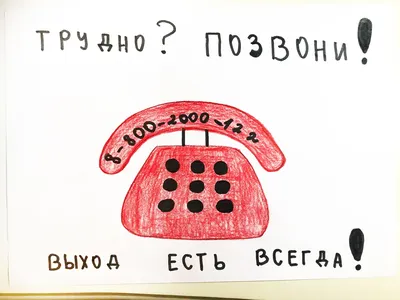 ТРУДНО? ПОЗВОНИ!
8-800-2000-122
ВЫХОД ЕСТЬ ВСЕГДА!